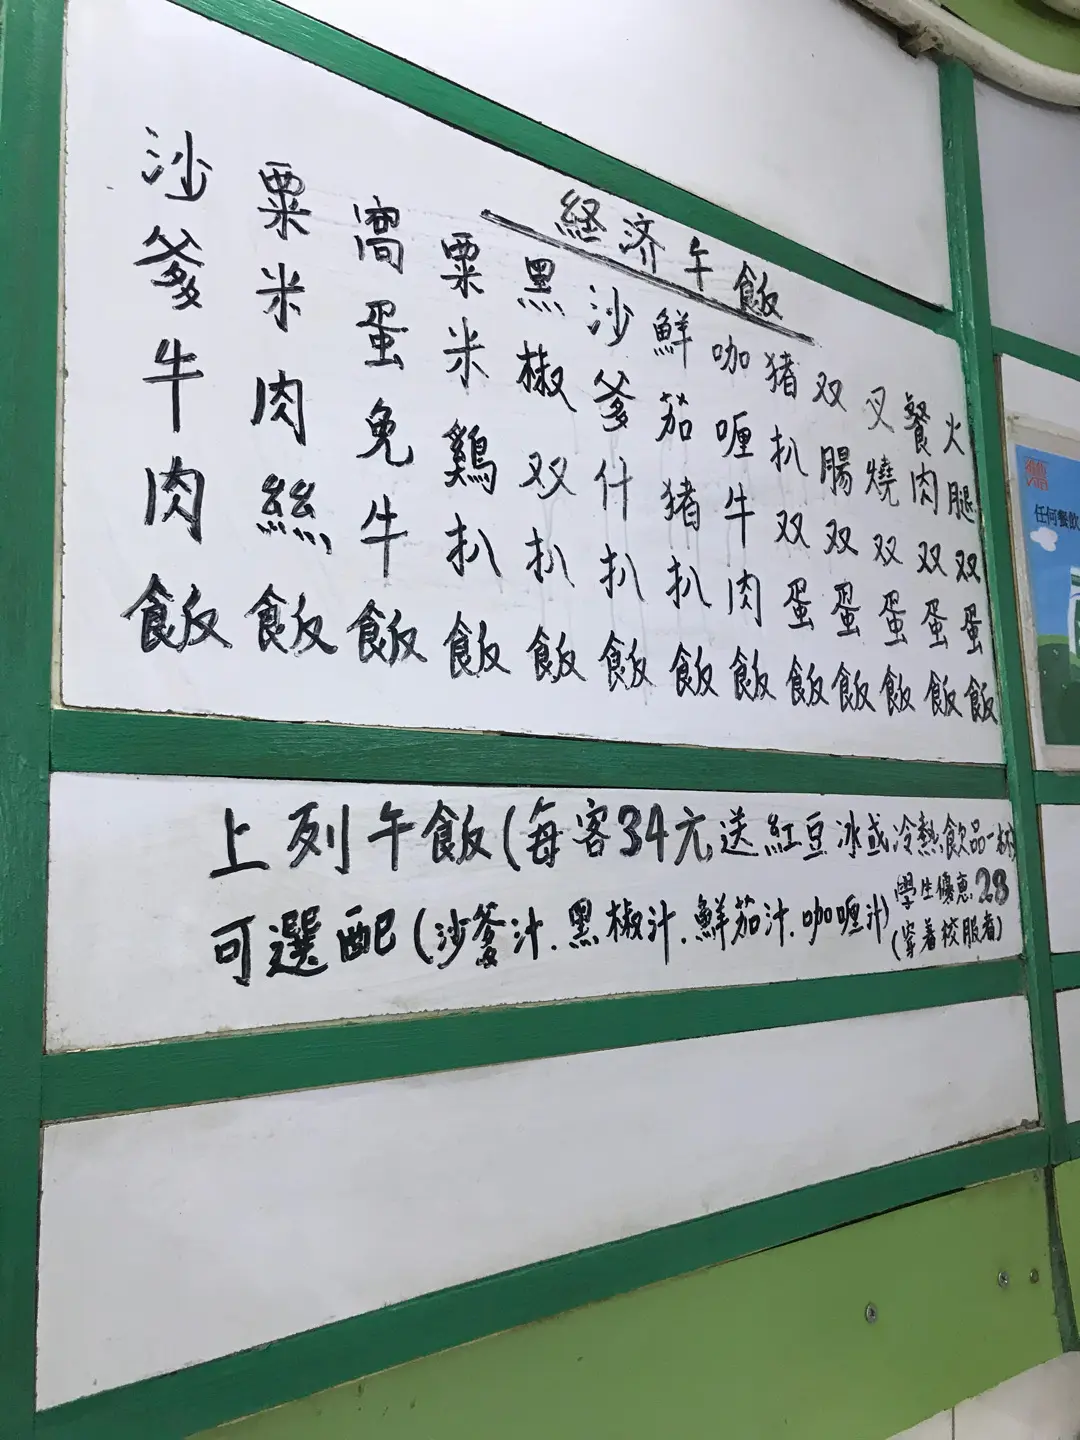 経济午飯
火腿双蛋飯
餐肉双蛋飯
叉燒双蛋飯
双腸双蛋飯
猪扒双蛋飯
咖喱牛肉飯
鮮茄猪扒飯
沙爹什扒飯
黑椒双扒飯
粟米鷄扒飯
窩蛋免牛飯
粟米肉絲飯
沙爹牛肉飯
上列午飯(每客34元送紅豆冰或冷熱飲品一杯)
可選配(沙爹汁.黑椒汁.鮮茄汁.咖喱汁)
學生優惠28
(穿着校服者)
任何餐飲